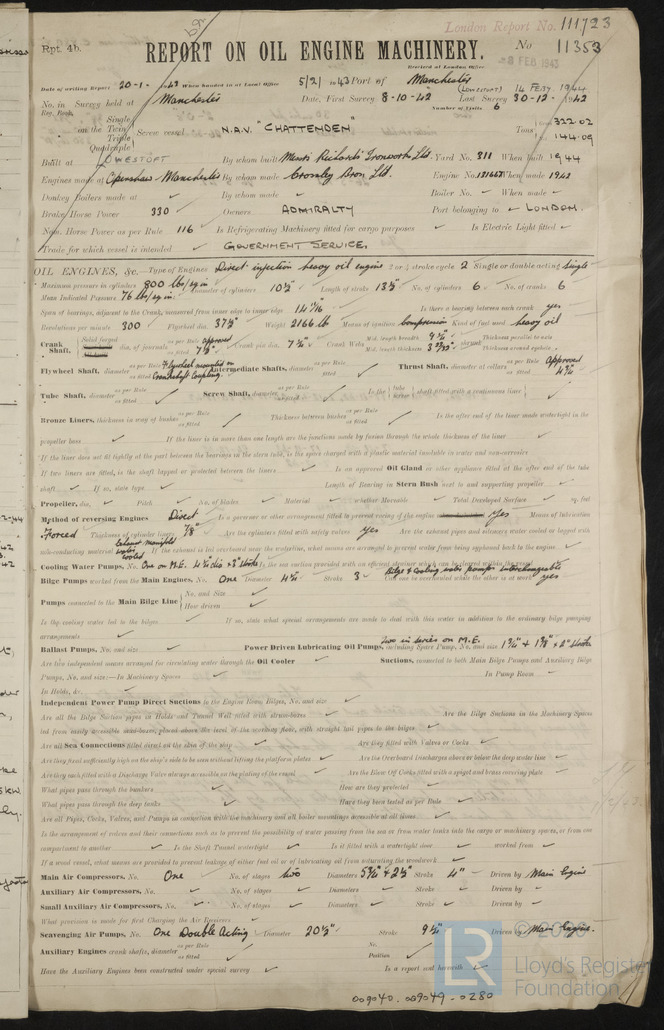 London Report No. 111723
Rpt. 4b.
REPORT ON OIL ENGINE MACHINERY.
No 11353
Received at London Office
8 FEB 1943
Date of writing Report 20-1-1943 When handed in at Local Office 5/2/1943 Port of Manchester
(LOWESTOFT) 14 FEBY 1944
No. in Survey held at Manchester Date, First Survey 8-10-42 Last Survey 30-12-1942
Reg. Book. Number of Visits 6
Single
on the Twin Screw vessel N.A.V. "CHATTENDEN" Tons 322.02
Triple 144.09
Quadruple
Built at LOWESTOFT By whom built Messrs Richards Ironworks Ltd. Yard No. 311 When built 1944
Engines made at Openshaw Manchester By whom made Crossley Bros. Ltd. Engine No. 121667 When made 1942
Donkey Boilers made at By whom made Boiler No. When made
Brake Horse Power 330 Owners ADMIRALTY Port belonging to LONDON.
Nom. Horse Power as per Rule 116 Is Refrigerating Machinery fitted for cargo purposes Is Electric Light fitted
Trade for which vessel is intended GOVERNMENT SERVICE.
OIL ENGINES, &c. Type of Engines Direct injection heavy oil engine 2 or 4 stroke cycle 2 Single or double acting Single
Maximum pressure in cylinders 800 lbs/sq in Diameter of cylinders 10½" Length of stroke 13½" No. of cylinders 6 No. of cranks 6
Mean Indicated Pressure 76 lb/sq in.
Span of bearings, adjacent to the Crank, measured from inner edge to inner edge Is there a bearing between each crank yes
Revolutions per minute 300 Flywheel dia. 37½" Weight 2166 lb Means of ignition Compression Kind of fuel used heavy oil
Crank Shaft, dia. of journals as per Rule approved as fitted 7½" Crank pin dia. 7¼" Crank Webs Mid. length breadth 9¼" Thickness parallel to axis
Mid. length thickness Thickness around eyehole
Flywheel Shaft, diameter as per Rule Flywheel mounted on as fitted Crankshaft Coupling. Intermediate Shafts, diameter as per Rule as fitted Thrust Shaft, diameter at collars as per Rule Approved as fitted 4¾"
Tube Shaft, diameter as per Rule as fitted Screw Shaft, diameter as per Rule as fitted Is the tube screw shaft fitted with a continuous liner
Bronze Liners, thickness in way of bushes as per Rule as fitted Thickness between bushes as per Rule as fitted Is the after end of the liner made watertight in the
propeller boss If the liner is in more than one length are the junctions made by fusion through the whole thickness of the liner
If the liner does not fit tightly at the part between the bearings in the stern tube, is the space charged with a plastic material insoluble in water and non-corrosive
If two liners are fitted, is the shaft lapped or protected between the liners Is an approved Oil Gland or other appliance fitted at the after end of the tube
shaft If so, state type Length of Bearing in Stern Bush next to and supporting propeller
Propeller, dia. Pitch No. of blades Material whether Moveable Total Developed Surface sq. feet
Method of reversing Engines Direct Is a governor or other arrangement fitted to prevent racing of the engine Yes Means of lubrication
Forced Thickness of cylinder liners 7/8" Are the cylinders fitted with safety valves yes Are the exhaust pipes and silencers water cooled or lagged with
non-conducting material Exhaust manifold water cooled If the exhaust is led overboard near the waterline, what means are arranged to prevent water from being syphoned back to the engine
Cooling Water Pumps, No. One on M.E. 4¼" dia x 3" stroke Is the sea suction provided with an efficient strainer which can be cleared within the vessel
Bilge & Cooling water pumps interchangeable
Bilge Pumps worked from the Main Engines, No. One Diameter 4¼" Stroke 3" Can one be overhauled while the other is at work yes
Pumps connected to the Main Bilge Line No. and Size
How driven
Is the cooling water led to the bilges If so, state what special arrangements are made to deal with this water in addition to the ordinary bilge pumping
arrangements
Ballast Pumps, No. and size Power Driven Lubricating Oil Pumps, including Spare Pump, No. and size two in series on M.E. 1¾" & 1⅞" x 2" stroke
Are two independent means arranged for circulating water through the Oil Cooler Suctions, connected to both Main Bilge Pumps and Auxiliary Bilge
Pumps, No. and size:—In Machinery Spaces In Pump Room
In Holds, &c.
Independent Power Pump Direct Suctions to the Engine Room Bilges, No. and size
Are all the Bilge Suction pipes in Holds and Tunnel Well fitted with strum-boxes Are the Bilge Suctions in the Machinery Spaces
led from easily accessible mud-boxes, placed above the level of the working floor, with straight tail pipes to the bilges
Are all Sea Connections fitted direct on the skin of the ship Are they fitted with Valves or Cocks
Are they fixed sufficiently high on the ship's side to be seen without lifting the platform plates Are the Overboard Discharges above or below the deep water line
Are they each fitted with a Discharge Valve always accessible on the plating of the vessel Are the Blow Off Cocks fitted with a spigot and brass covering plate
What pipes pass through the bunkers How are they protected
What pipes pass through the deep tanks Have they been tested as per Rule
Are all Pipes, Cocks, Valves, and Pumps in connection with the machinery and all boiler mountings accessible at all times
Is the arrangement of valves and their connections such as to prevent the possibility of water passing from the sea or from water tanks into the cargo or machinery spaces, or from one
compartment to another Is the Shaft Tunnel watertight Is it fitted with a watertight door worked from
If a wood vessel, what means are provided to prevent leakage of either fuel oil or of lubricating oil from saturating the woodwork
Main Air Compressors, No. One No. of stages two Diameters 5¾" & 2½" Stroke 4" Driven by Main Engine
Auxiliary Air Compressors, No. No. of stages Diameters Stroke Driven by
Small Auxiliary Air Compressors, No. No. of stages Diameters Stroke Driven by
What provision is made for first Charging the Air Receivers
Scavenging Air Pumps, No. One Double Acting Diameter 20½" Stroke 9¼" Driven by Main Engine.
Auxiliary Engines crank shafts, diameter as per Rule as fitted No. Position
Have the Auxiliary Engines been constructed under special survey Is a report sent herewith
009040.009049-0280
LR
© 2020
Lloyd's Register
Foundation